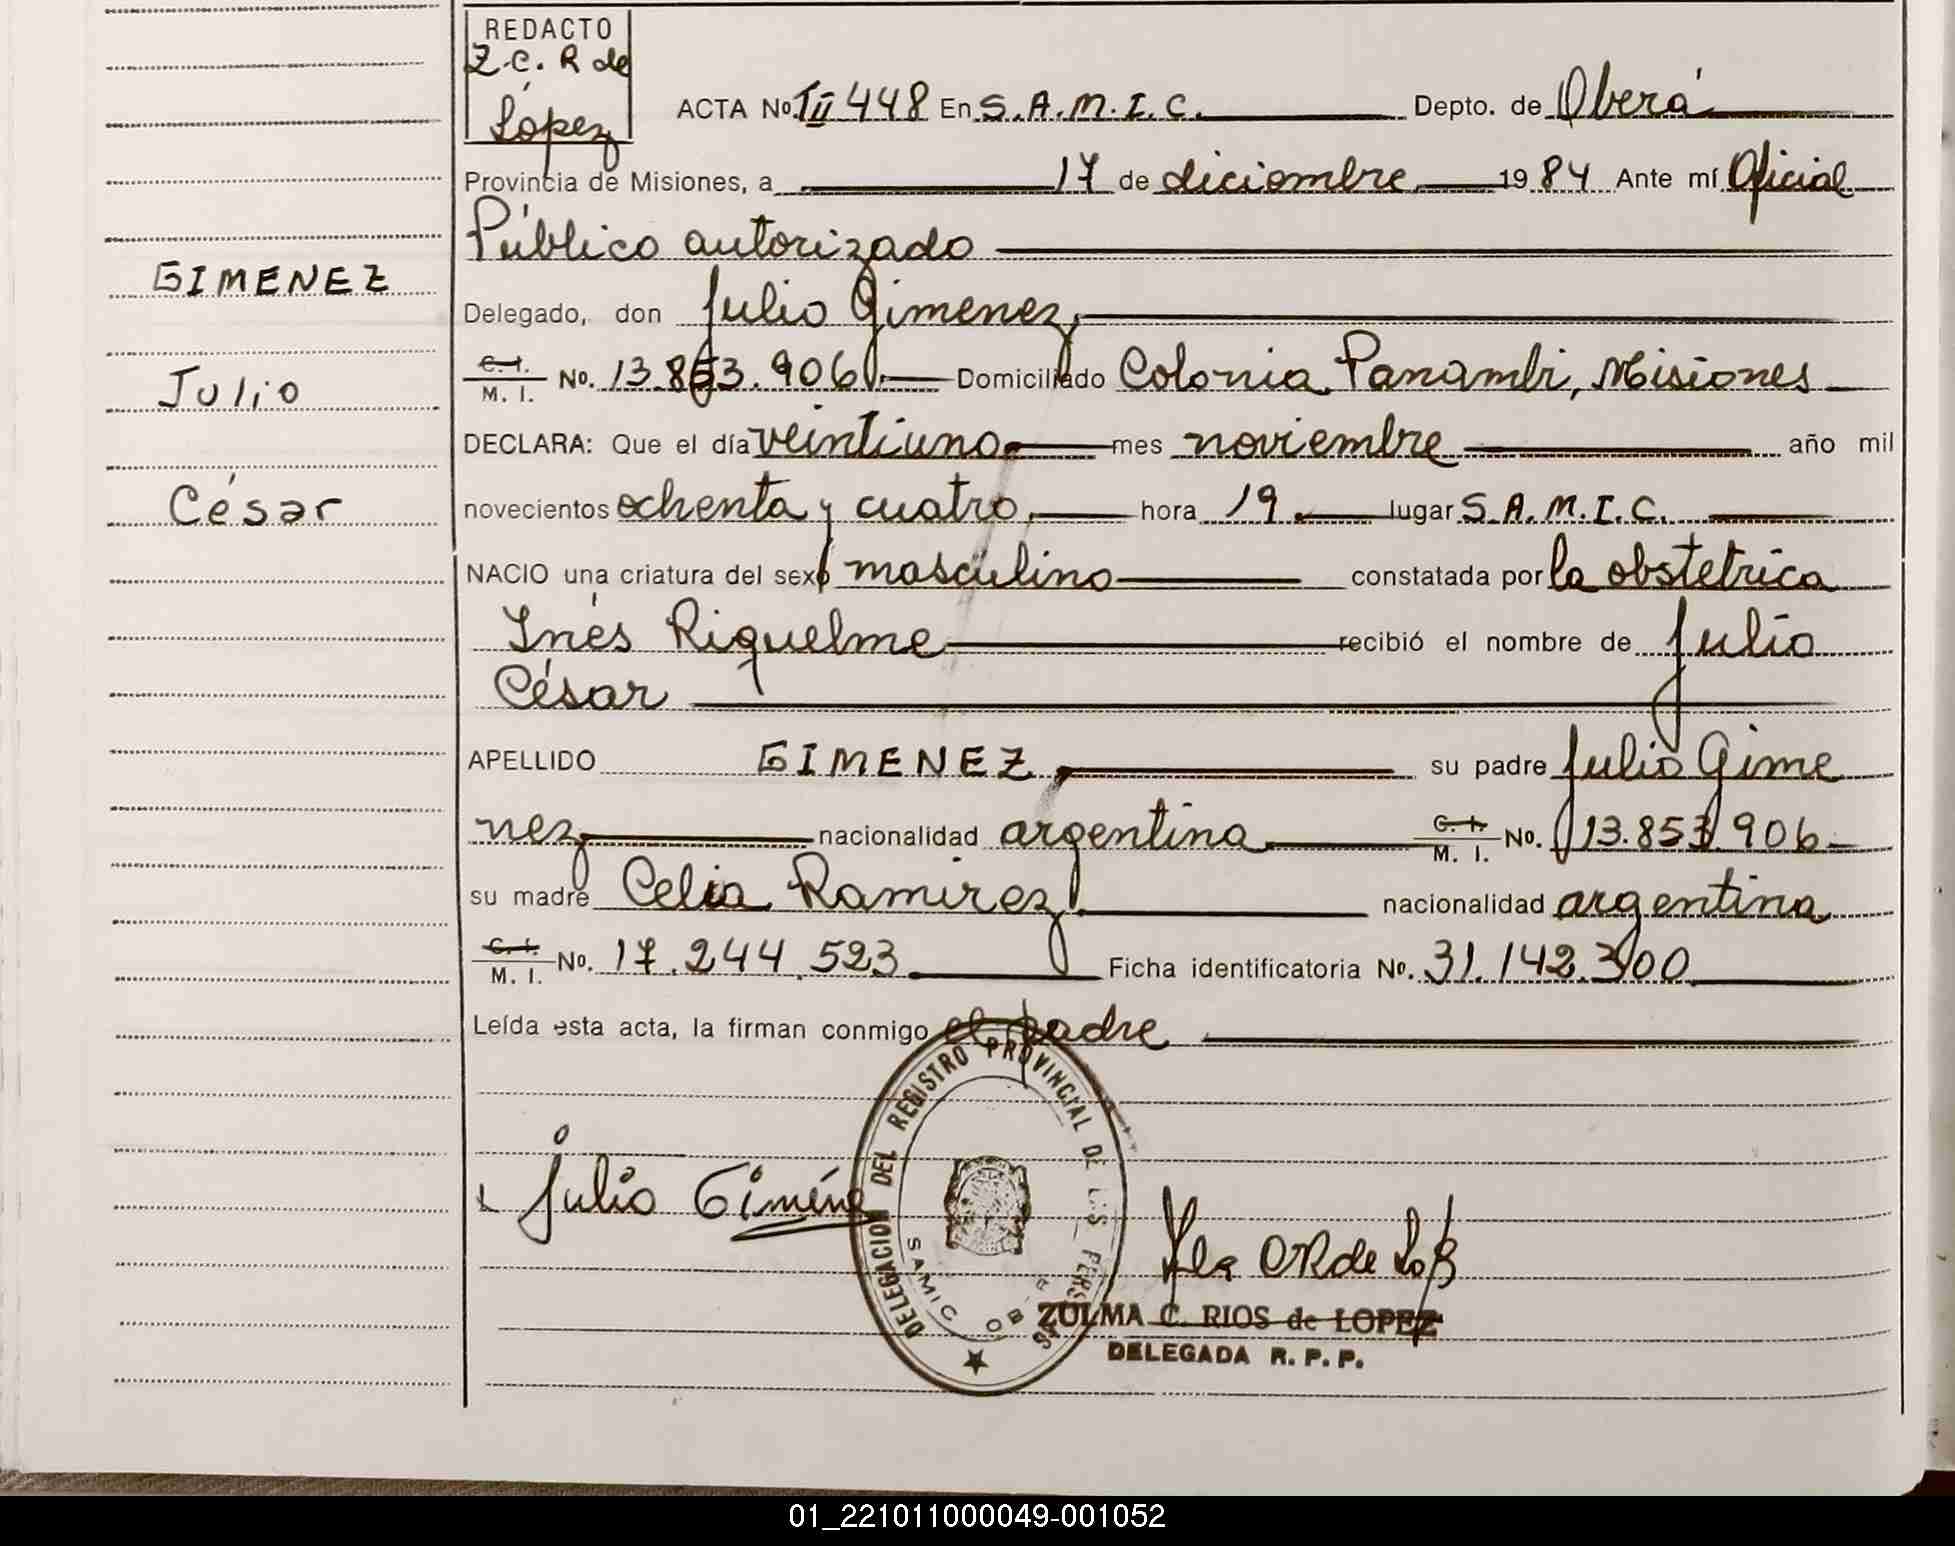 REDACTO
Z.C. R de
López
ACTA No. TII 448 En S.A.M.I.C. Depto. de Oberá
Provincia de Misiones, a 17 de diciembre 1984 Ante mí Oficial
Público autorizado
GIMENEZ
Delegado, don Julio Gimenez
C.I. M.I. No. 13.853.906 Domiciliado Colonia Panambi, Misiones
Julio
DECLARA: Que el día veintiuno mes noviembre año mil
César
novecientos ochenta y cuatro, hora 19 lugar S.A.M.I.C.
NACIO una criatura del sexo masculino constatada por la obstetrica
Inés Riquelme recibió el nombre de Julio
César
APELLIDO GIMENEZ, su padre Julio Gime
nez nacionalidad argentina C.I. M.I. No. 13.853.906
su madre Celia Ramirez nacionalidad argentina
C.I. M.I. No. 17.244.523 Ficha identificatoria No. 31.142.300
Leída esta acta, la firman conmigo el padre
DELEGACION DEL REGISTRO PROVINCIAL DE LAS PERS
SAMIC OB
Julio Giménez
ZULMA C. RIOS de LOPEZ
DELEGADA R.P.P.
01_221011000049-001052